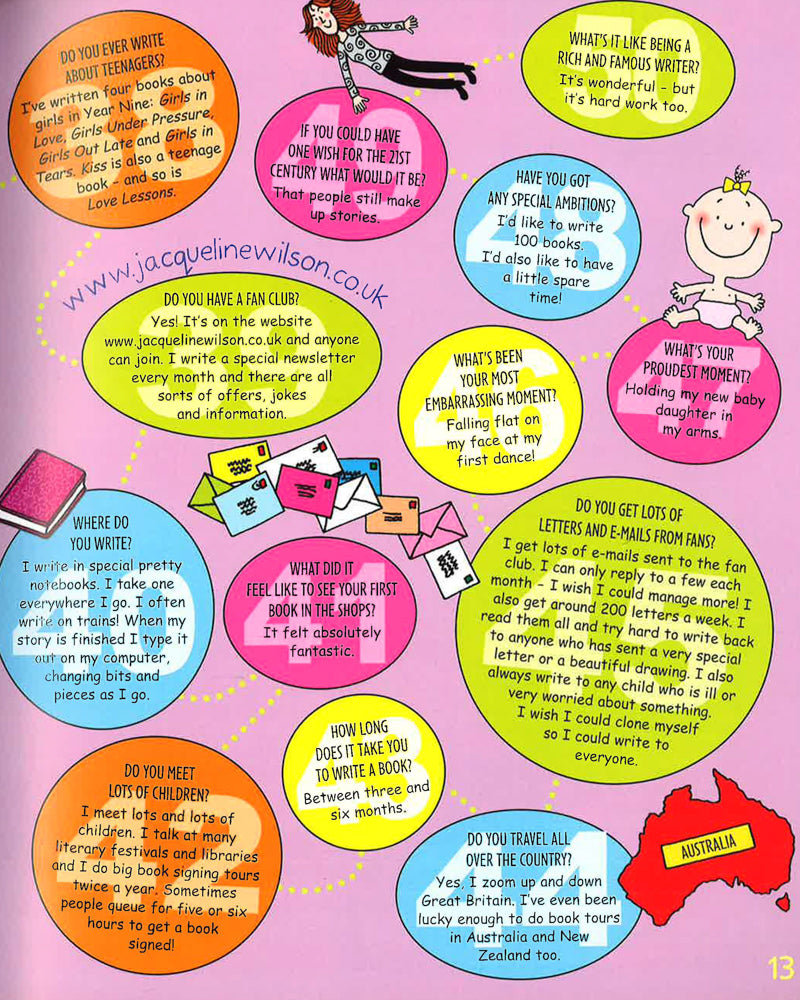 38
DO YOU EVER WRITE
ABOUT TEENAGERS?
I've written four books about
girls in Year Nine: Girls in
Love, Girls Under Pressure,
Girls Out Late and Girls in
Tears. Kiss is also a teenage
book - and so is
Love Lessons.
www.jacquelinewilson.co.uk
39
DO YOU HAVE A FAN CLUB?
Yes! It's on the website
www.jacquelinewilson.co.uk and anyone
can join. I write a special newsletter
every month and there are all
sorts of offers, jokes
and information.
40
WHERE DO
YOU WRITE?
I write in special pretty
notebooks. I take one
everywhere I go. I often
write on trains! When my
story is finished I type it
out on my computer,
changing bits and
pieces as I go.
41
WHAT DID IT
FEEL LIKE TO SEE YOUR FIRST
BOOK IN THE SHOPS?
It felt absolutely
fantastic.
42
DO YOU MEET
LOTS OF CHILDREN?
I meet lots and lots of
children. I talk at many
literary festivals and libraries
and I do big book signing tours
twice a year. Sometimes
people queue for five or six
hours to get a book
signed!
43
HOW LONG
DOES IT TAKE YOU
TO WRITE A BOOK?
Between three and
six months.
44
DO YOU TRAVEL ALL
OVER THE COUNTRY?
Yes, I zoom up and down
Great Britain. I've even been
lucky enough to do book tours
in Australia and New
Zealand too.
AUSTRALIA
45
DO YOU GET LOTS OF
LETTERS AND E-MAILS FROM FANS?
I get lots of e-mails sent to the fan
club. I can only reply to a few each
month - I wish I could manage more! I
also get around 200 letters a week. I
read them all and try hard to write back
to anyone who has sent a very special
letter or a beautiful drawing. I also
always write to any child who is ill or
very worried about something.
I wish I could clone myself
so I could write to
everyone.
46
WHAT'S BEEN
YOUR MOST
EMBARRASSING MOMENT?
Falling flat on
my face at my
first dance!
47
WHAT'S YOUR
PROUDEST MOMENT?
Holding my new baby
daughter in
my arms.
48
HAVE YOU GOT
ANY SPECIAL AMBITIONS?
I'd like to write
100 books.
I'd also like to have
a little spare
time!
49
IF YOU COULD HAVE
ONE WISH FOR THE 21ST
CENTURY WHAT WOULD IT BE?
That people still make
up stories.
50
WHAT'S IT LIKE BEING A
RICH AND FAMOUS WRITER?
It's wonderful - but
it's hard work too.
13